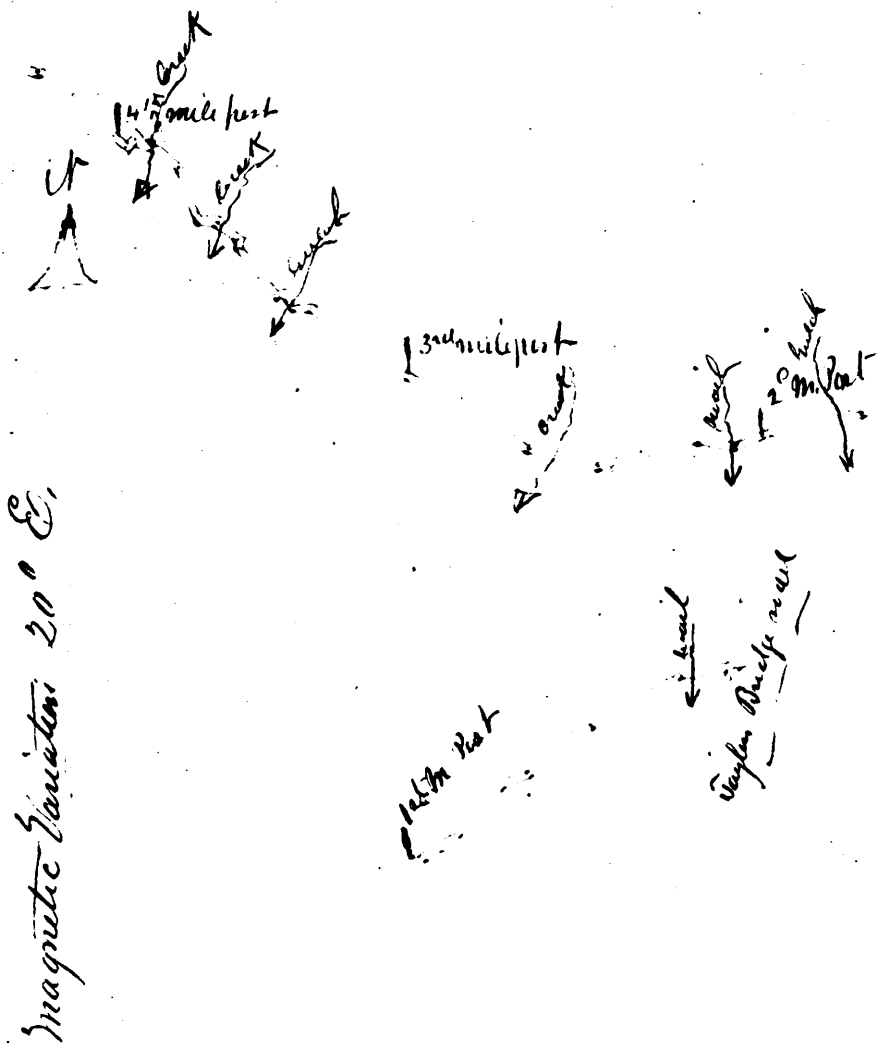 Creek
4th mile post
Creek
Gulch
N
3rd mile post
Creek
Gulch
2d M. Post
Road
Road
Taylors Bridge road
1st M Post
Magnetic Variation 20° E.